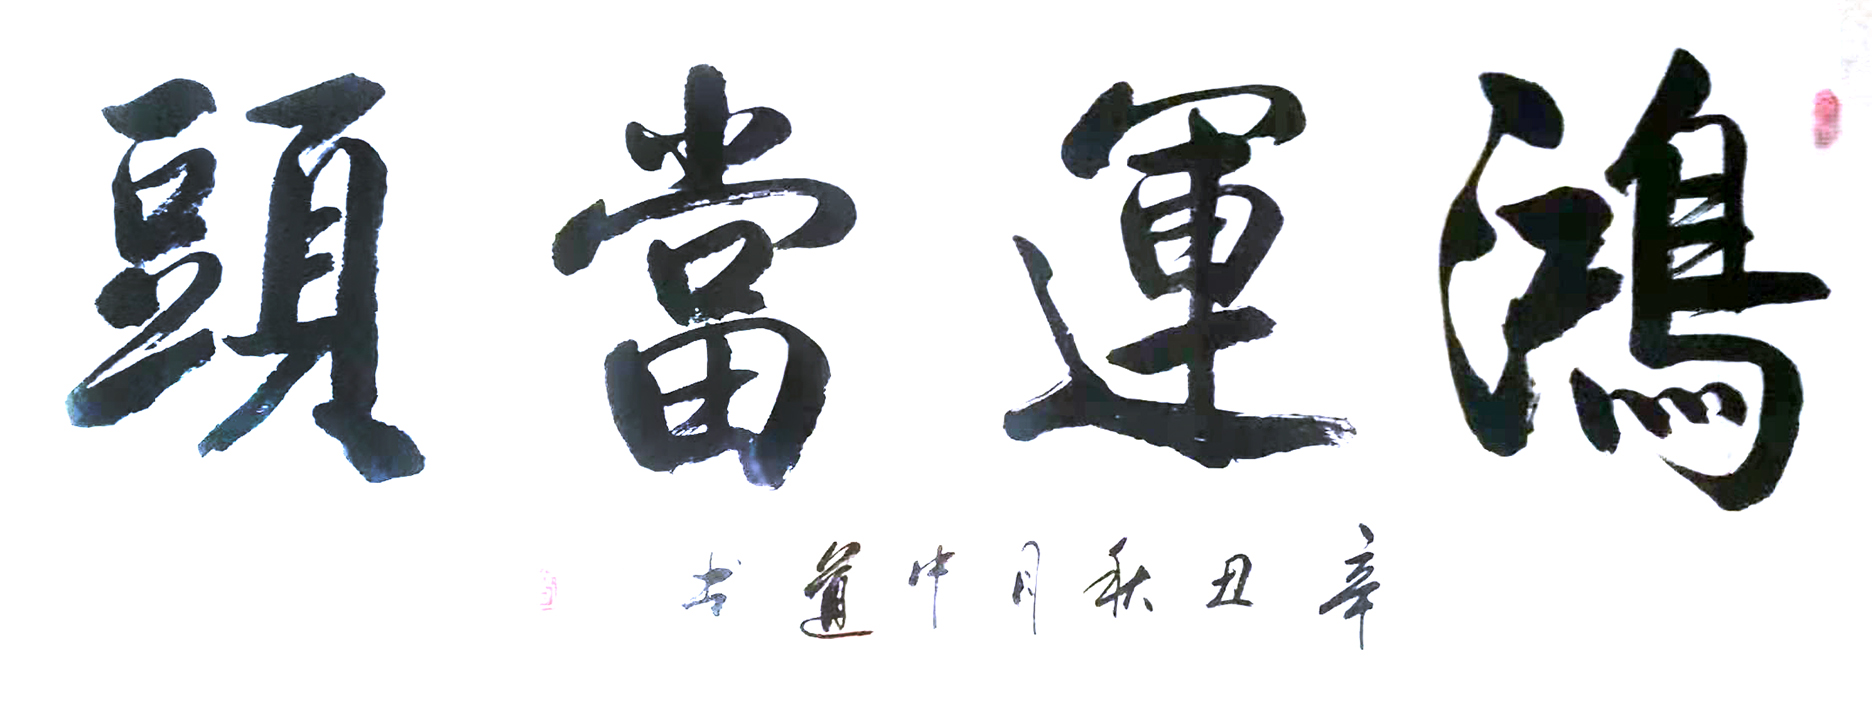 鴻運當頭
辛丑秋月中道书